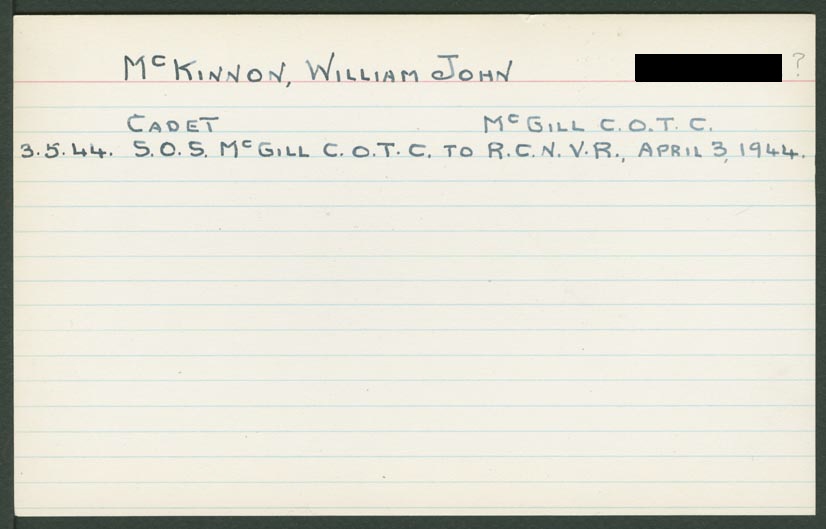 McKINNON, WILLIAM JOHN ?
CADET McGILL C.O.T.C.
3.5.44. S.O.S. McGILL C.O.T.C. TO R.C.N.V.R., APRIL 3, 1944.